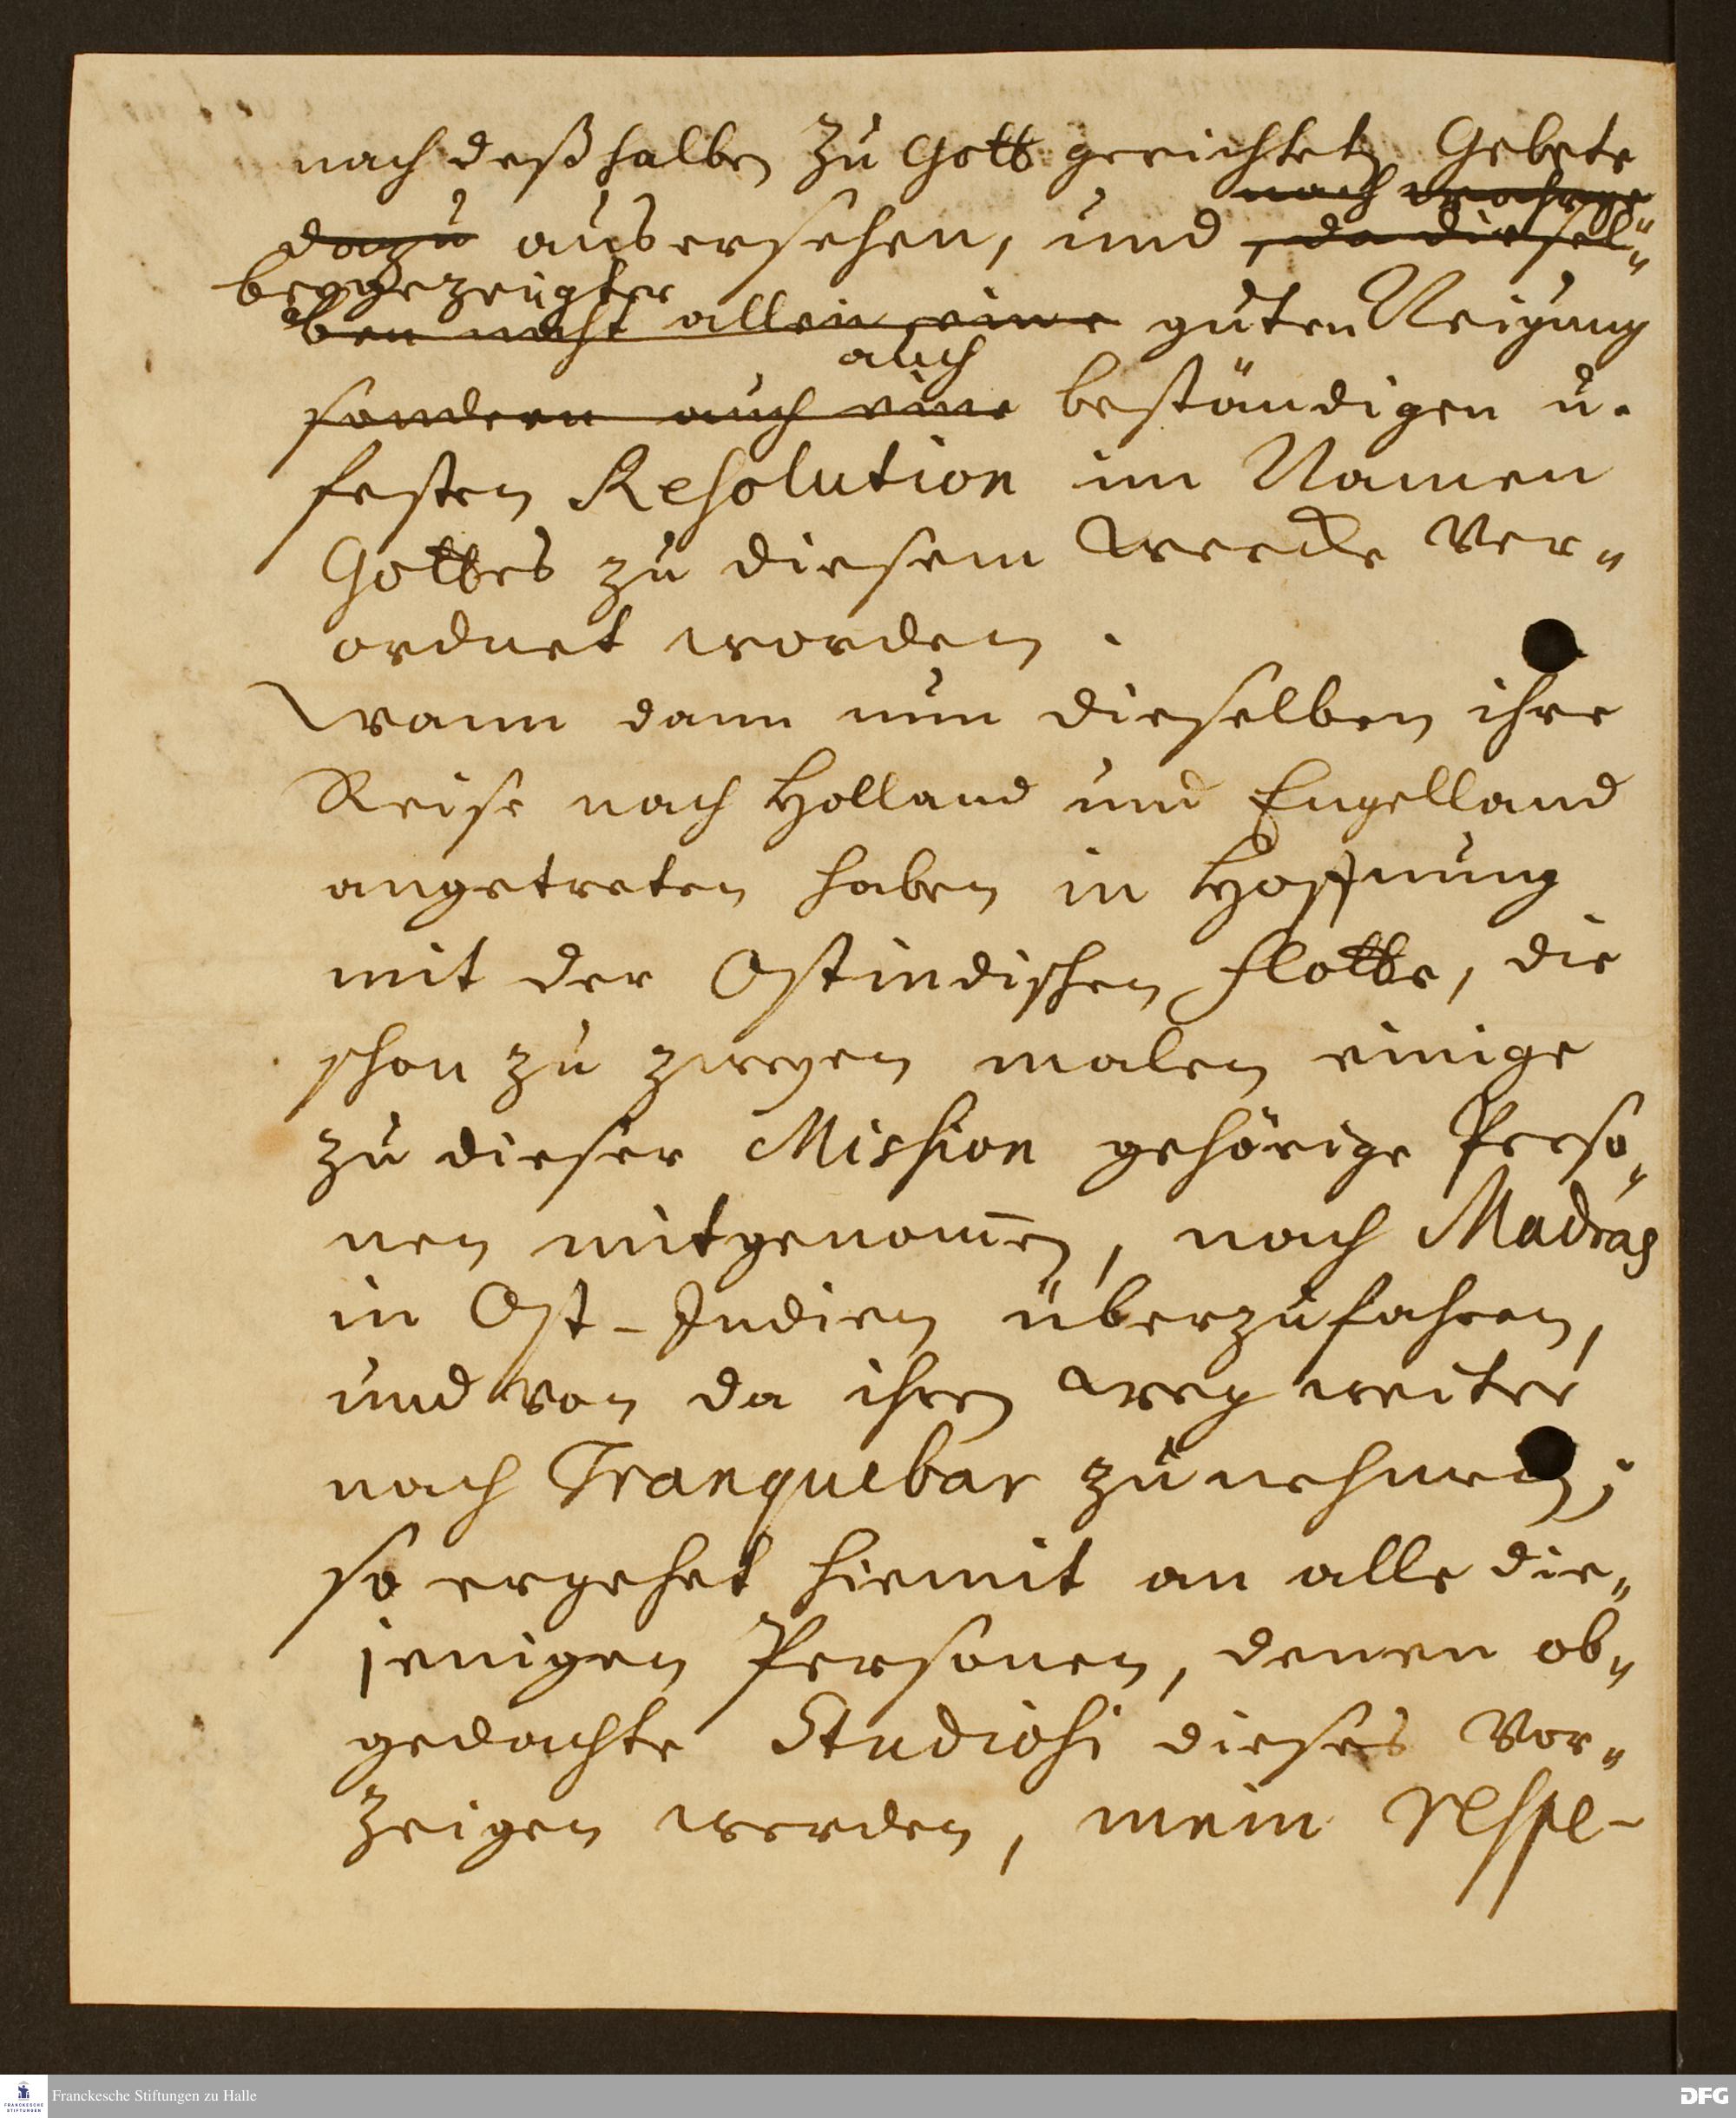 nach deßhalben zu Gott gerichteten Gebete
nach
dazu ausersehen, und , da diesel„
bezeugter
ben nicht allein eine guten Neigung
auch
sondern auch eine beständigen u.
festen Resolution im Namen
Gottes zu diesem Wercke ver„
ordnet worden.
Wann dann nun dieselben ihre
Reise nach Holland und Engelland
angetreten haben in Hoffnung
mit der Ostindischen Flotte, die
schon zu zweyen malen einige
zu dieser Mission gehörige Perso„
nen mitgenom̄en, nach Madras
in Ost-Indien überzufahren,
und von da ihren Weg weiter
nach Tranquebar zu nehmen;
so ergehet hiemit an alle die„
jenigen Personen, denen ob„
gedachte Studiosi dieses vor„
zeigen werden, mein respe-
Franckesche Stiftungen zu Halle
FRANCKESCHE
STIFTUNGEN
DFG